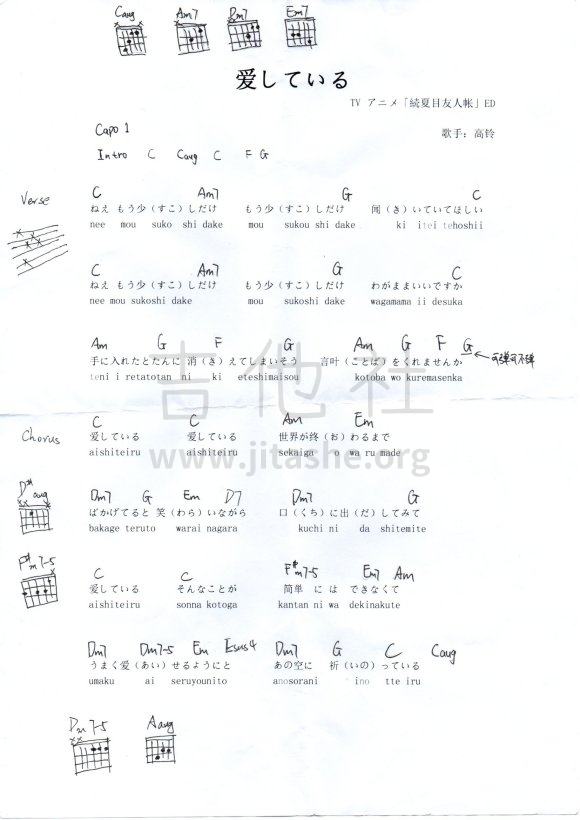 Caug Am7 Dm7 Em7
爱している
TV アニメ「続夏目友人帐」ED
Capo 1
歌手：高铃
Intro C Caug C F G
Verse
C Am7 G C
ねえ もう少（すこ）しだけ もう少（すこ）しだけ 闻（き）いていてほしい
nee mou suko shi dake mou sukou shi dake ki itei tehoshii
C Am7 G C
ねえ もう少（すこ）しだけ もう少（すこ）しだけ わがままいいですか
nee mou sukoshi dake mou sukoshi dake wagamama ii desuka
Am G F G Am G F G ←可弹可不弹
手に入れたとたんに 消（き）えてしまいそう 言叶（ことば）をくれませんか
teni i retatotan ni ki eteshimaisou kotoba wo kuremasenka
吉他社
Chorus
C C Am Em
爱している 爱している 世界が终（お）わるまで
aishiteiru aishiteiru sekaiga o wa ru made
www.jitashe.org
D#aug
Dm7 G Em D7 Dm7 G
ばかげてると 笑（わら）いながら 口（くち）に出（だ）してみて
bakage teruto warai nagara kuchi ni da shitemite
F#m7-5
C C F#m7-5 Em7 Am
爱している そんなことが 简単 に は できなくて
aishiteiru sonna kotoga kantan ni wa dekinakute
Dm7 Dm7-5 Em Esus4 Dm7 G C Caug
うまく爱（あい）せるようにと あの空に 祈（いの）っている
umaku ai seruyounito anosorani ino tte iru
Dm7-5 Aaug